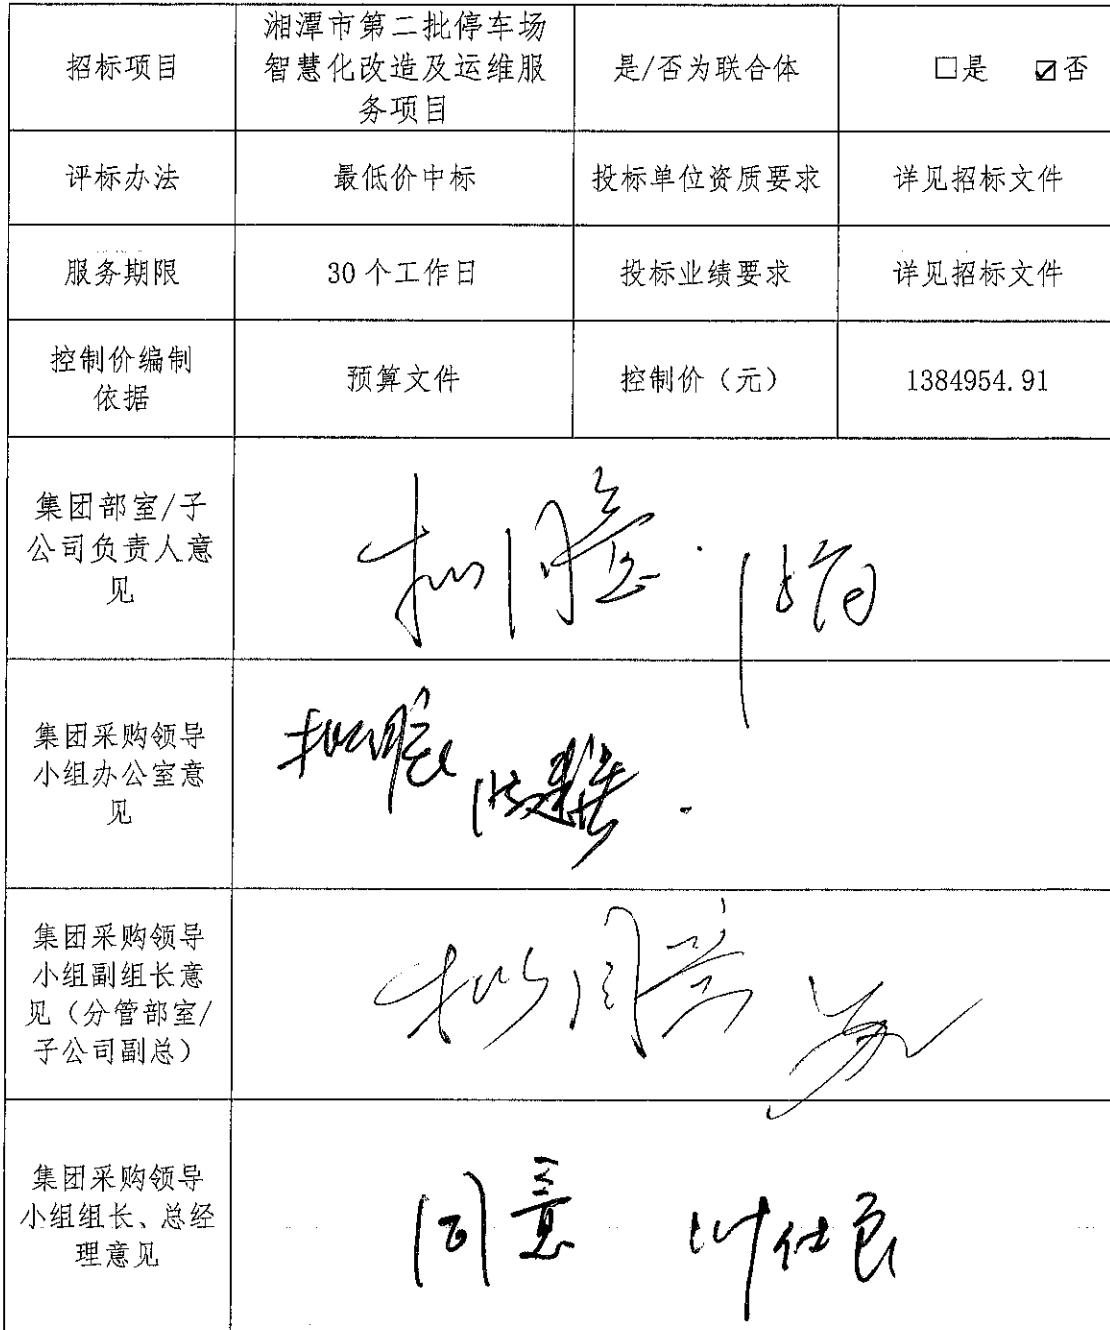 招标项目
湘潭市第二批停车场
智慧化改造及运维服
务项目
是/否为联合体
☐是 ☑否
评标办法
最低价中标
投标单位资质要求
详见招标文件
服务期限
30个工作日
投标业绩要求
详见招标文件
控制价编制
依据
预算文件
控制价（元）
1384954.91
集团部室/子
公司负责人意
见
拟同意.
集团采购领导
小组办公室意
见
拟同意
集团采购领导
小组副组长意
见（分管部室/
子公司副总）
拟同意
集团采购领导
小组组长、总经
理意见
同意